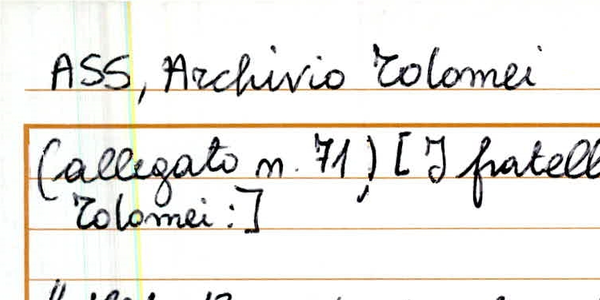 ASS, Archivio Tolomei
(allegato n. 71), [I fratell
Tolomei:]